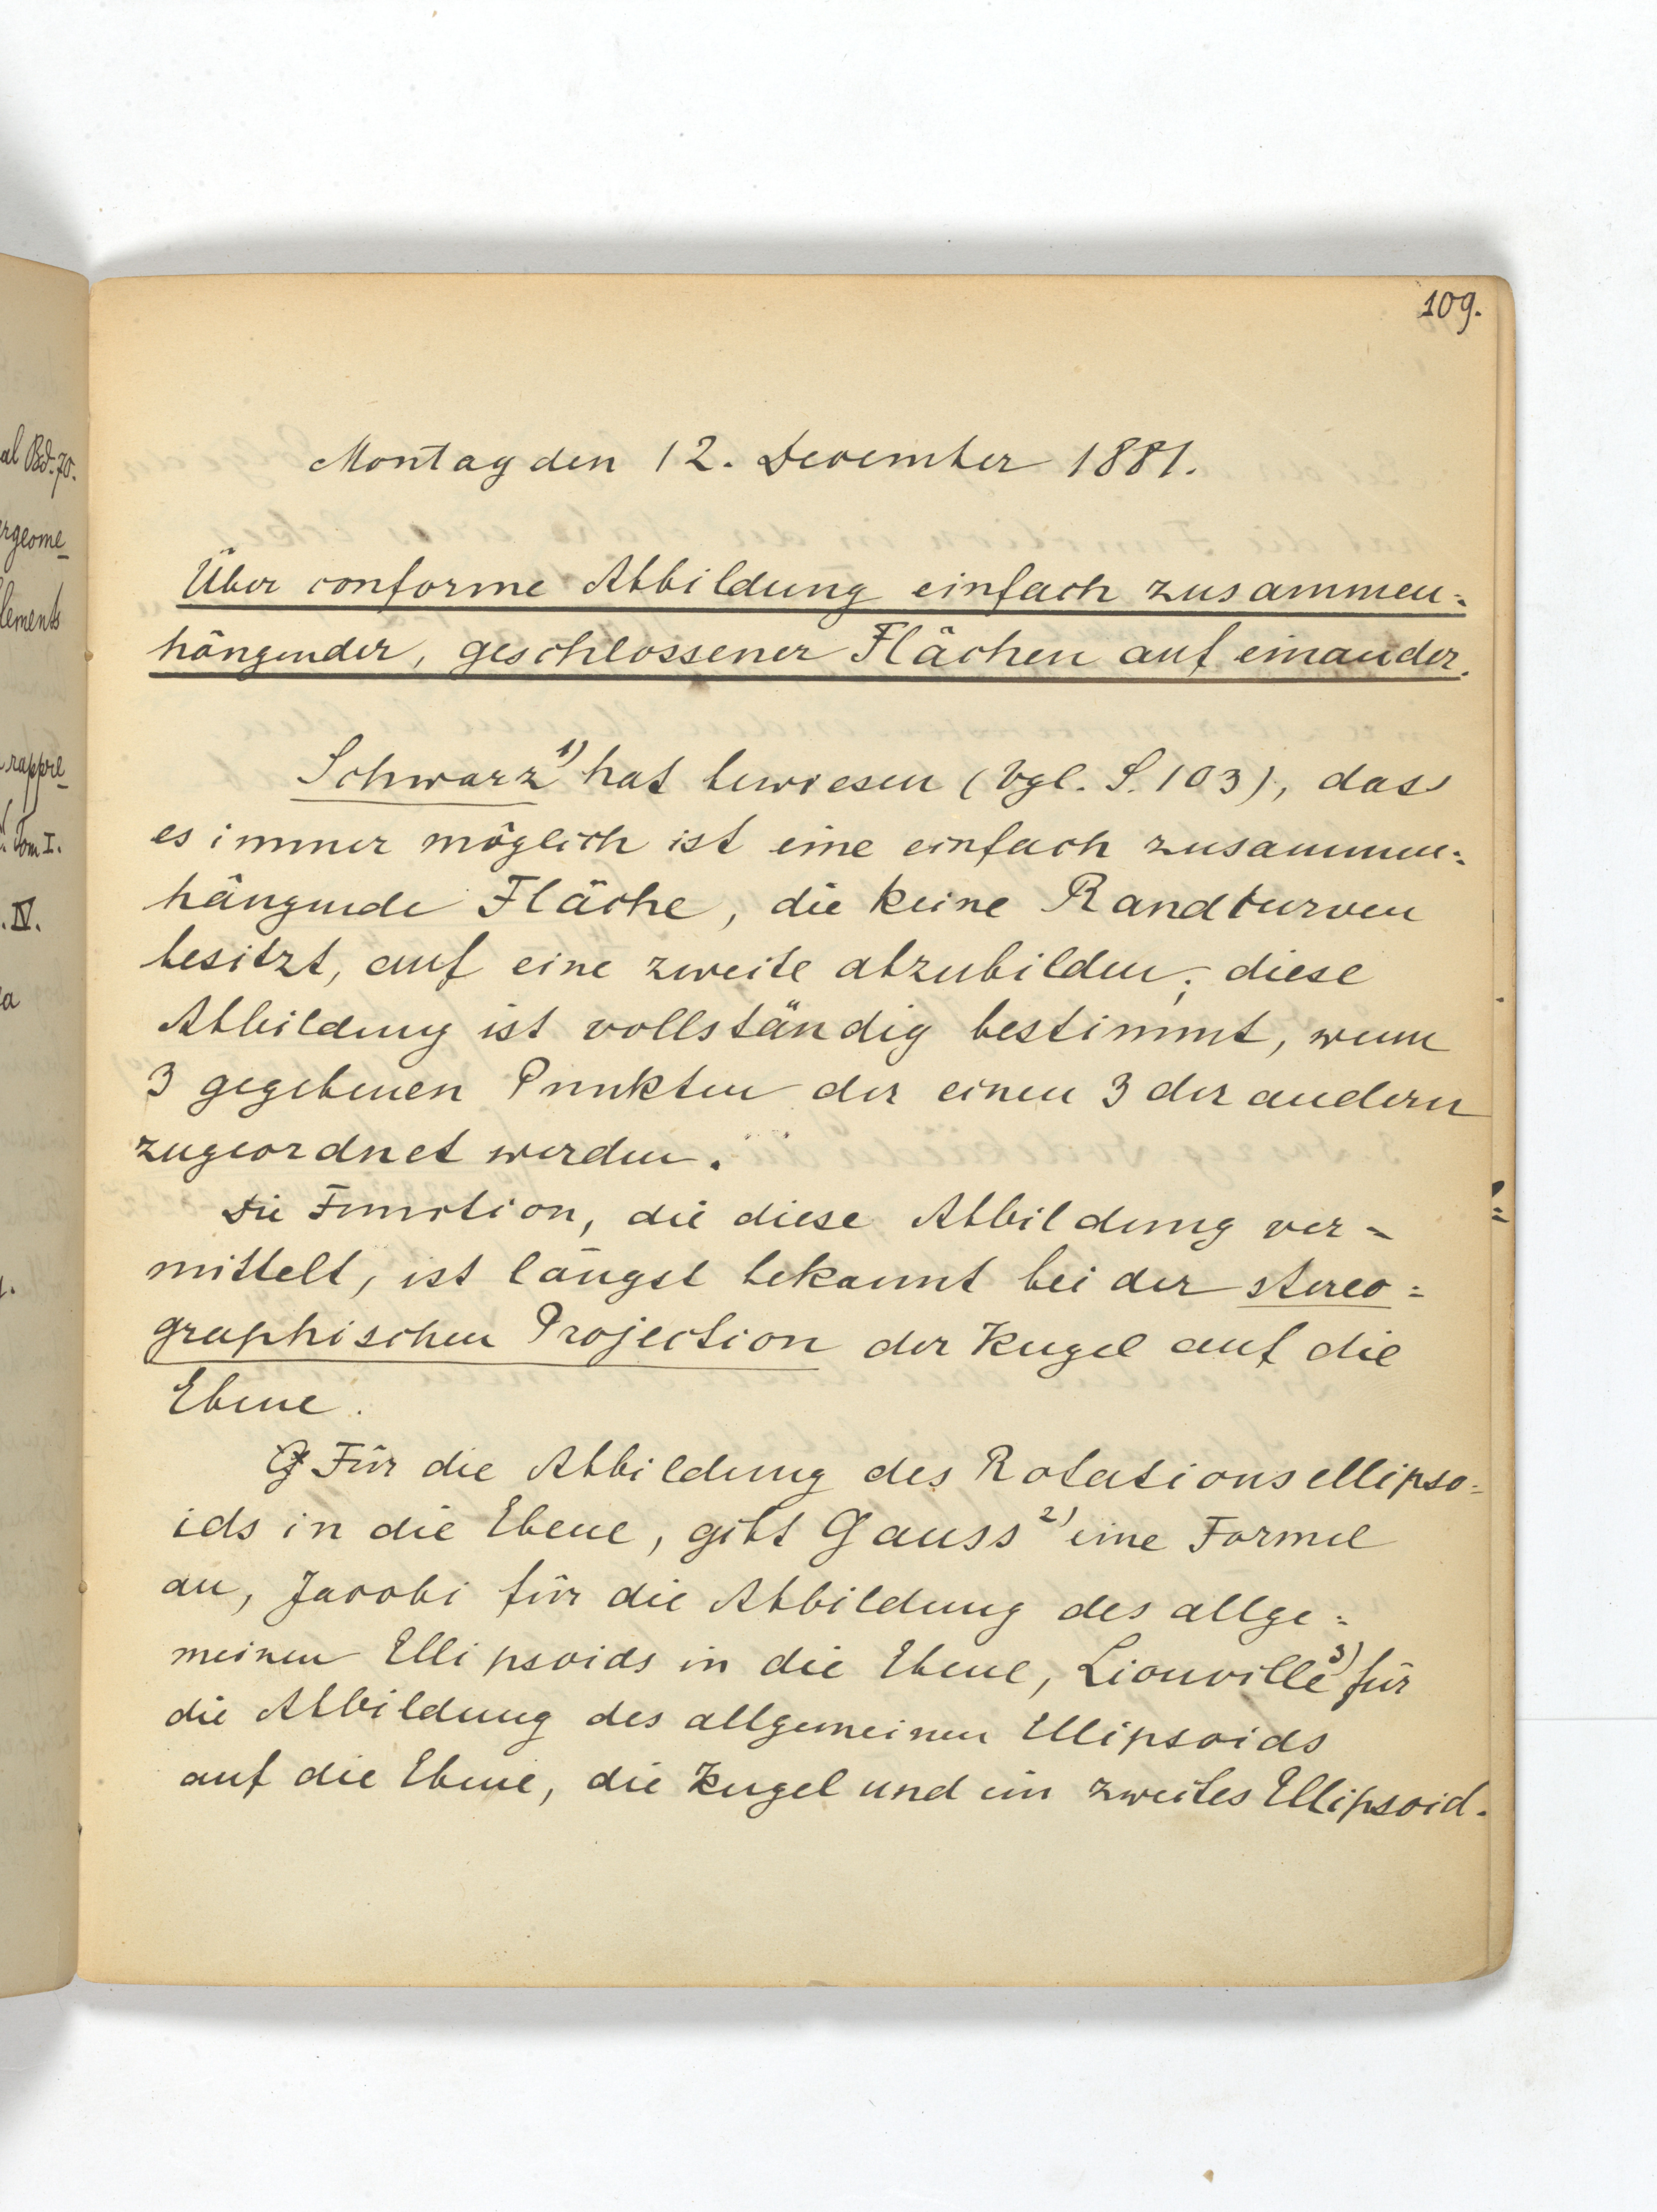 109.
Montag den 12. December 1881.
Über conforme Abbildung einfach zusammen=
hängender, geschlossener Flächen auf einander.
Schwarz 1) hat bewiesen (Vgl. S. 103), dass
es immer möglich ist eine einfach zusammen=
hängende Fläche, die keine Randkurven
besitzt, auf eine zweite abzubilden; diese
Abbildung ist vollständig bestimmt, wenn
3 gegebenen Punkten der einen 3 der andern
zugeordnet werden.
Die Function, die diese Abbildung ver-
mittelt, ist längst bekannt bei der stereo=
graphischen Projection der Kugel auf die
Ebene.
Für die Abbildung des Rotationsellipso=
ids in die Ebene, gibt Gauss 2) eine Formel
an, Jacobi für die Abbildung des allge=
meinen Ellipsoids in die Ebene, Liouville 3) für
die Abbildung des allgemeinen Ellipsoids
auf die Ebene, die Kugel und ein zweites Ellipsoid.
al Bd. 70.
ergeome_
lements
rappre_
Tom I.
. IV.